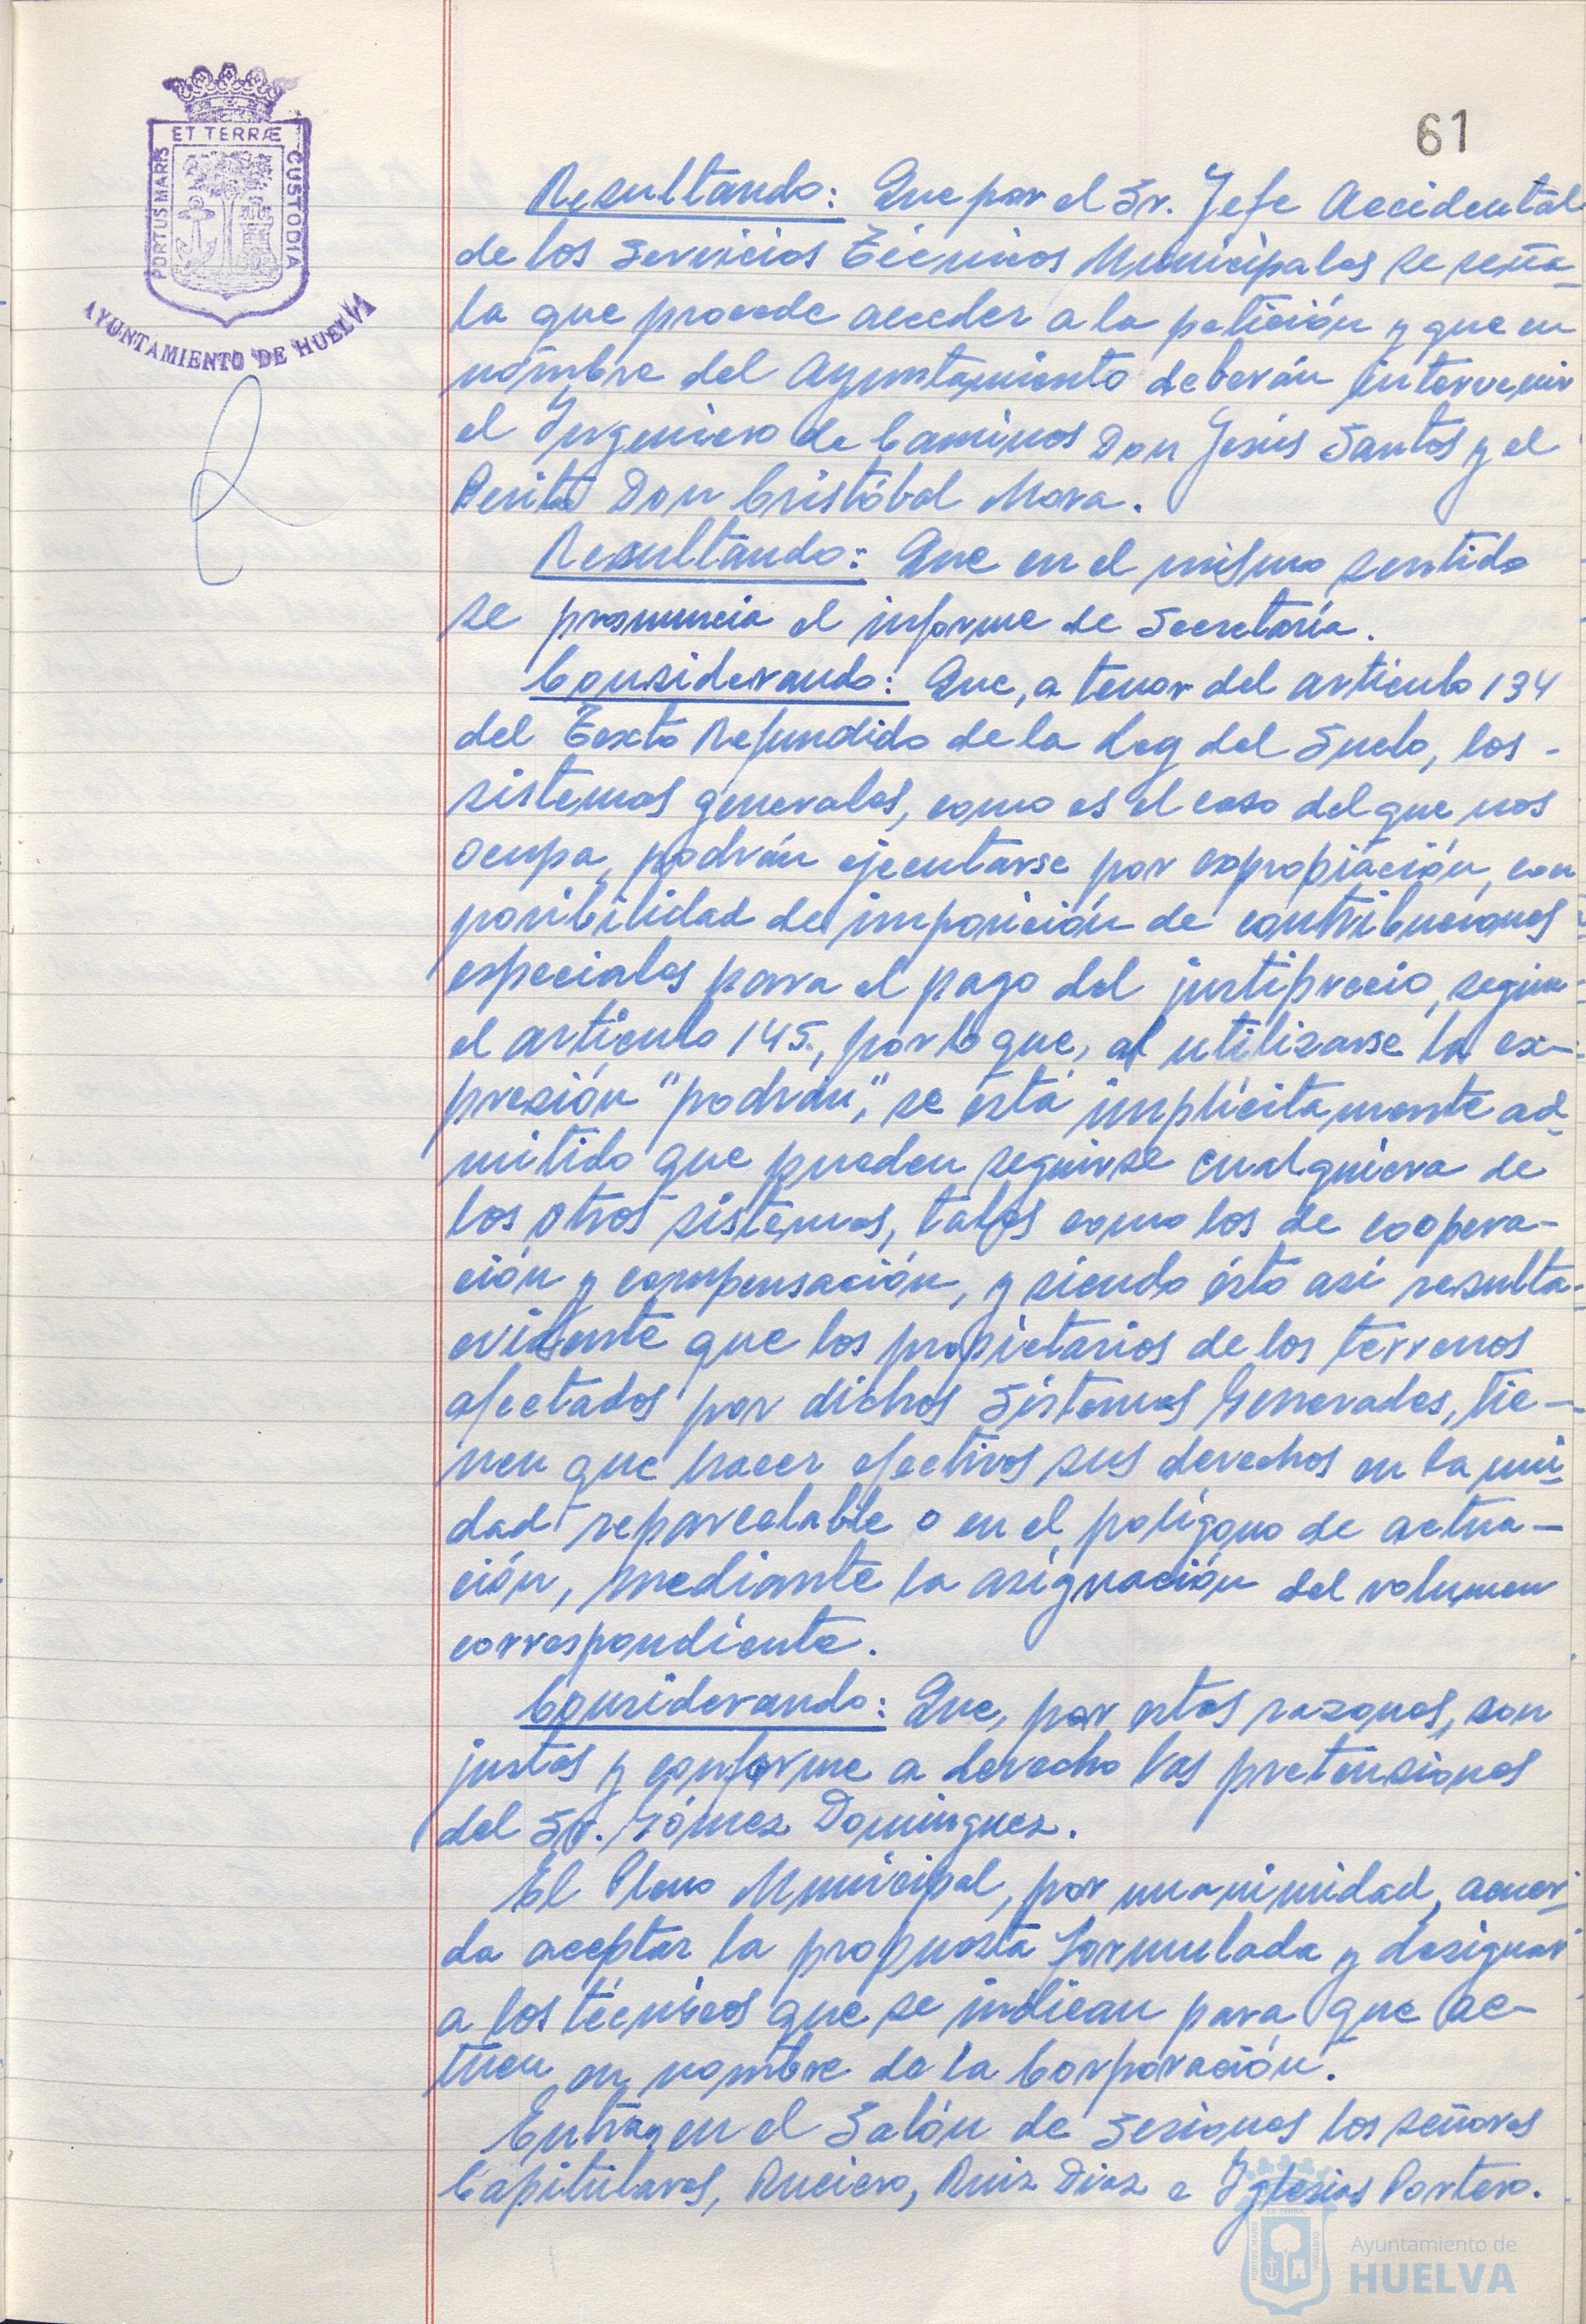 ET TERRÆ
PORTUS MARIS
CUSTODIA
AYUNTAMIENTO DE HUELVA
61
Resultando: Que por el Sr. Jefe Accidental
de los Servicios Técnicos Municipales se seña-
la que procede acceder a la petición y que en
nombre del Ayuntamiento deberán intervenir
el Ingeniero de Caminos Don Jesús Santos y el
Perito Don Cristóbal Mora.
Resultando: Que en el mismo sentido
se pronuncia el informe de Secretaría.
Considerando: Que, a tenor del artículo 134
del Texto Refundido de la Ley del Suelo, los -
sistemas generales, como es el caso del que nos
ocupa, podrán ejecutarse por expropiación, con
posibilidad de imposición de contribuciones
especiales para el pago del justiprecio, según
el artículo 145, por lo que, al utilizarse la ex-
presión "podrán", se está implícitamente ad-
mitido que pueden seguirse cualquiera de
los otros sistemas, tales como los de coopera-
ción y compensación, y siendo ésto así resulta-
evidente que los propietarios de los terrenos
afectados por dichos Sistemas Generales, tie-
nen que hacer efectivos sus derechos en la uni-
dad reparcelable o en el polígono de actua-
ción, mediante la asignación del volumen
correspondiente.
Considerando: Que, por estas razones, son
justas y conforme a derecho las pretensiones
del Sr. Gómez Domínguez.
El Pleno Municipal, por unanimidad, acuer-
da aceptar la propuesta formulada y designar
a los técnicos que se indican para que ac-
túen en nombre de la Corporación.
Entran en el Salón de Sesiones los señores
Capitulares, Ruciero, Ruiz Diaz e Iglesias Portero.
Ayuntamiento de
HUELVA